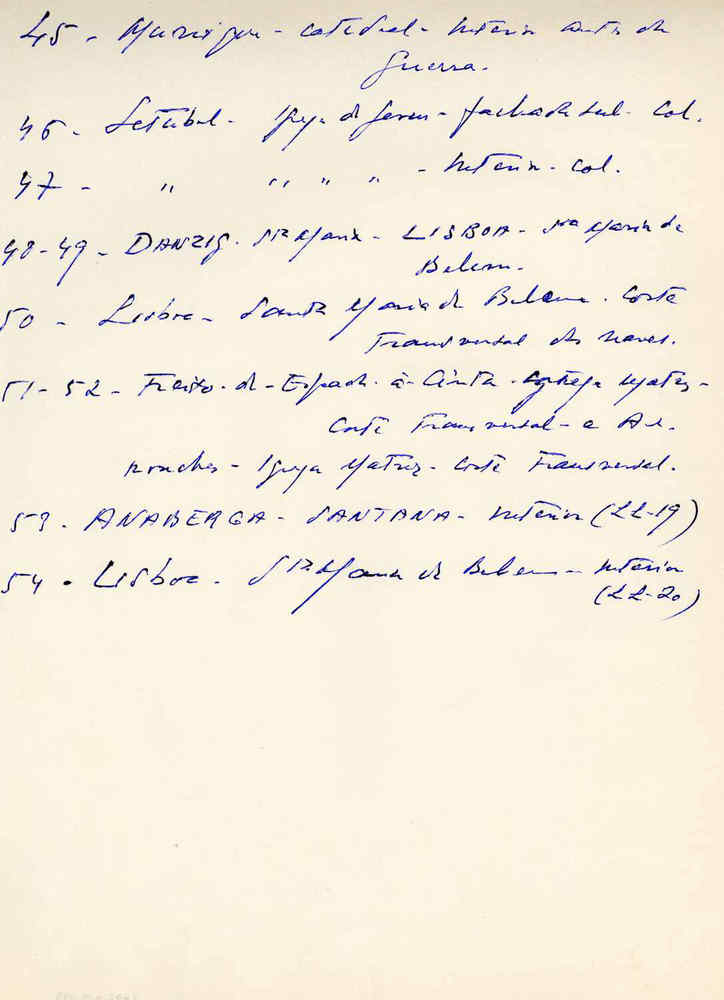 45 - Munique - catedral - Interior antes da
Guerra.
46 - Setúbal - Igreja de Jesus - fachada sul - col.
47 - " " " " - Interior - col.
48-49 - DANZIG - Sta Maria - LISBOA - Sta Maria de
Belem.
50 - Lisboa - Santa Maria de Belem - Corte
Transversal das naves.
51-52 - Freixo - de - Espada - à - Cinta - Igreja Matriz -
Corte Transversal - e Ar-
ronches - Igreja Matriz - Corte Transversal.
53 - ANABERGA - SANTANA - Interior (LL-19)
54 - Lisboa - Sta Maria de Belem - Interior
(LL-20)